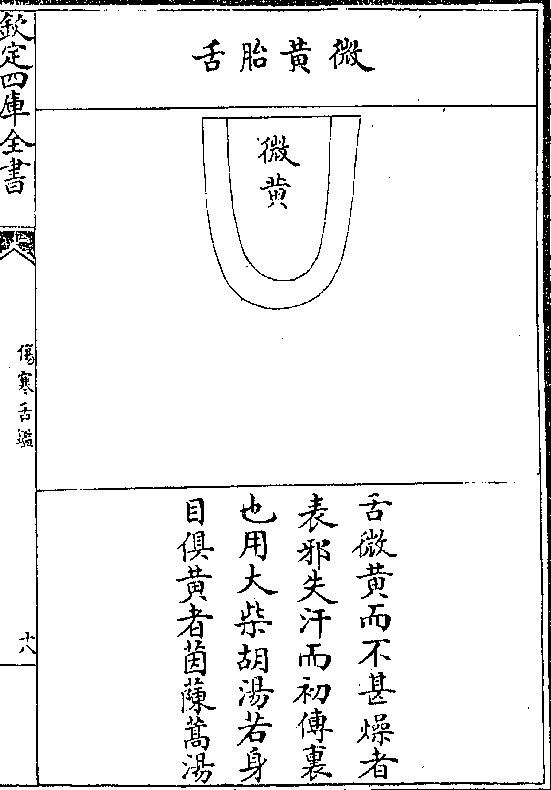 微黄胎舌
微黄
舌微黄而不甚燥者
表邪失汗而初傳裏
也用大柴胡湯若身
目俱黄者茵蔯蒿湯
欽定四庫全書
傷寒舌鑑
十八